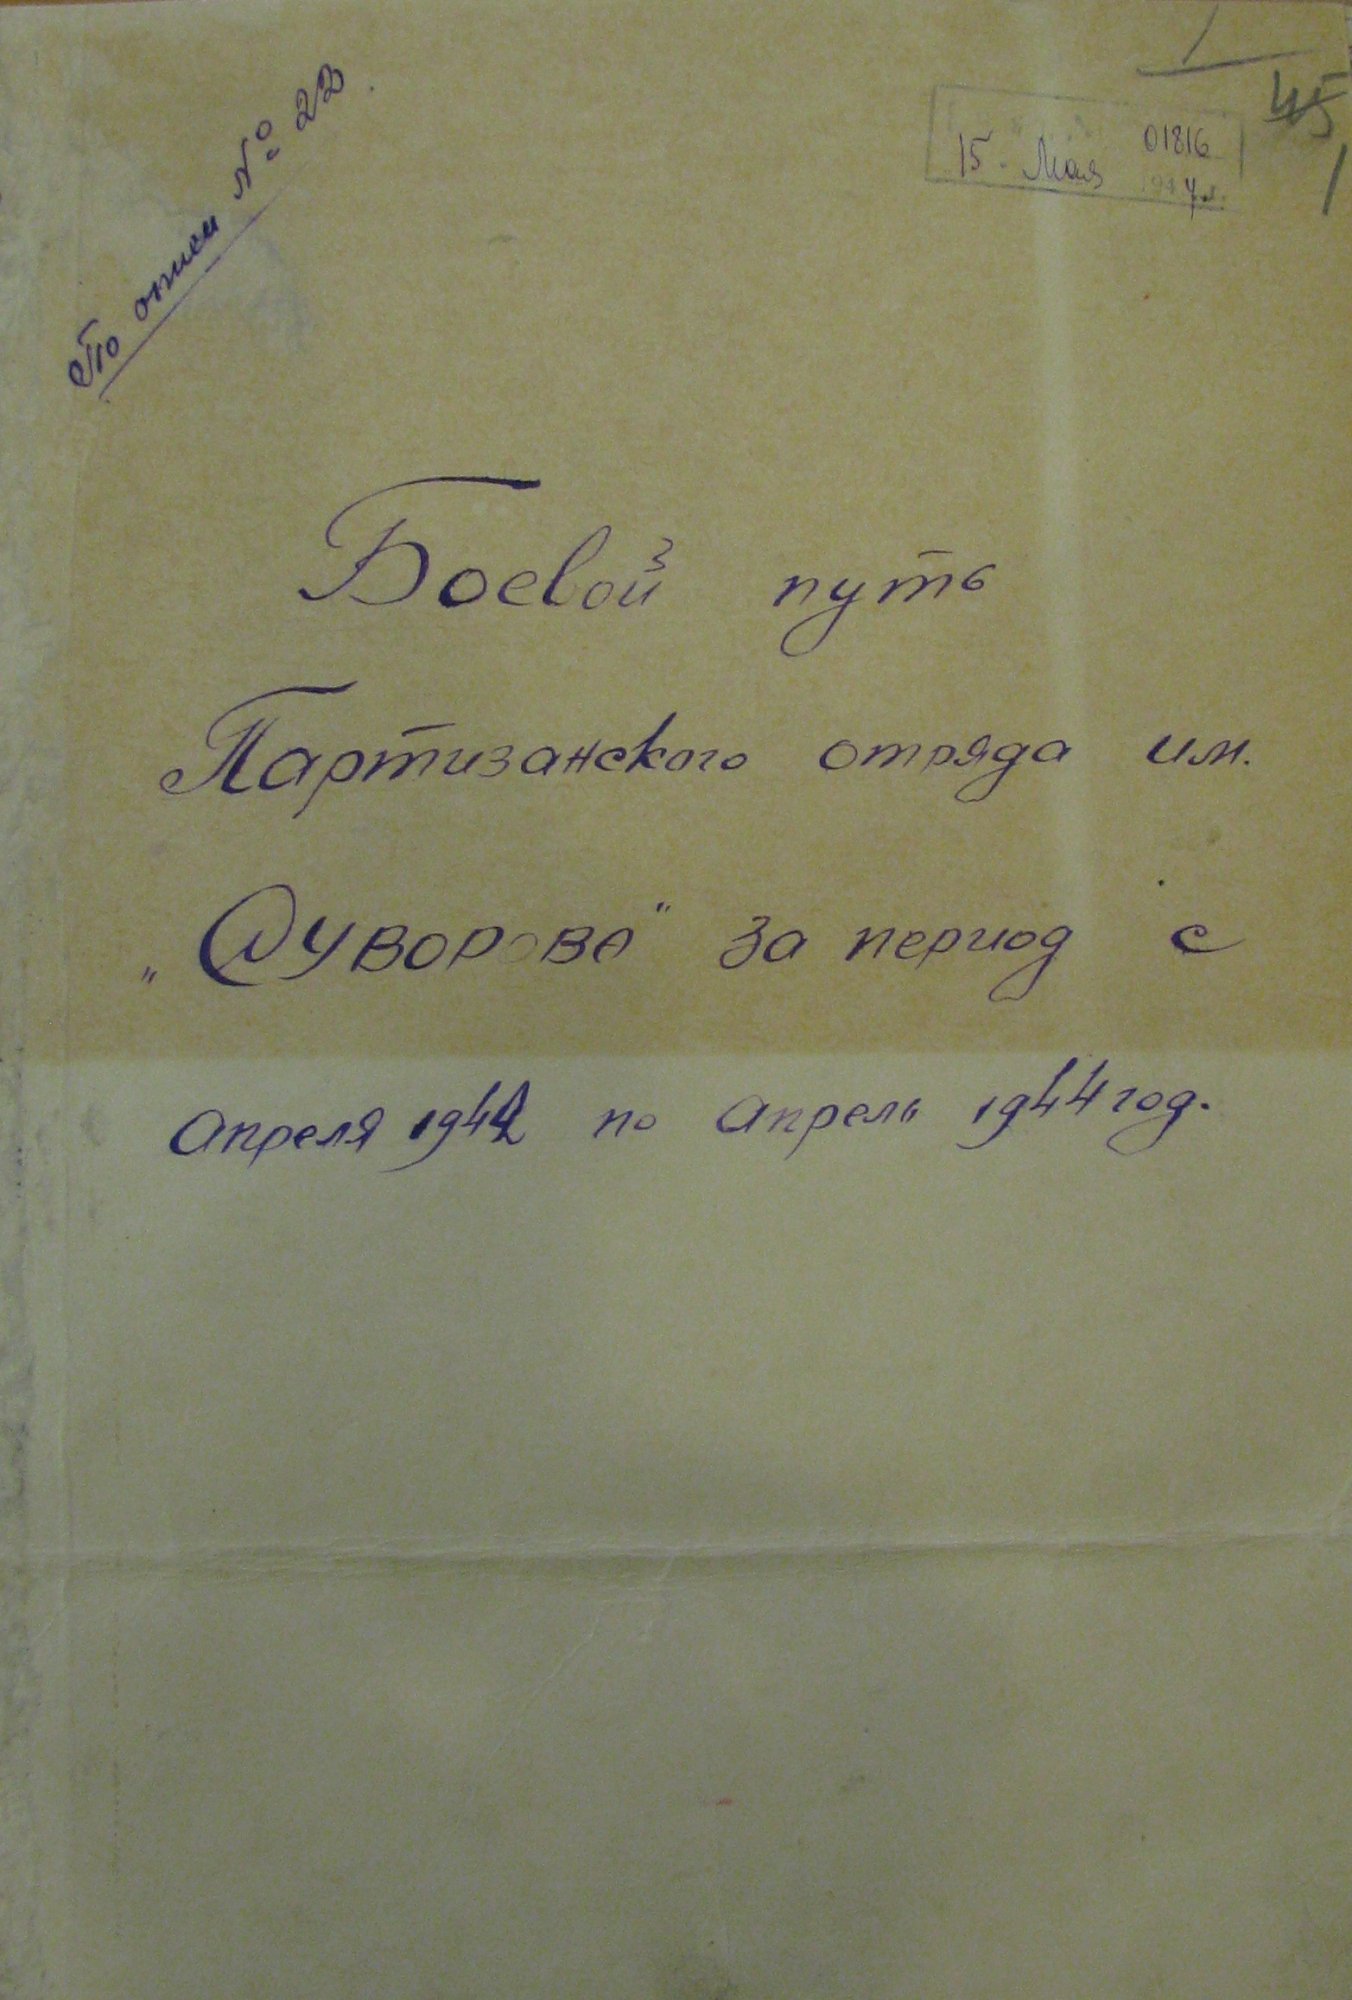 По описи № 22.
1
45
1
01816
15 - Мая 1944 г.
Боевой путь
Партизанского отряда им.
„Суворова" за период с
апреля 1942 по апрель 1944 год.